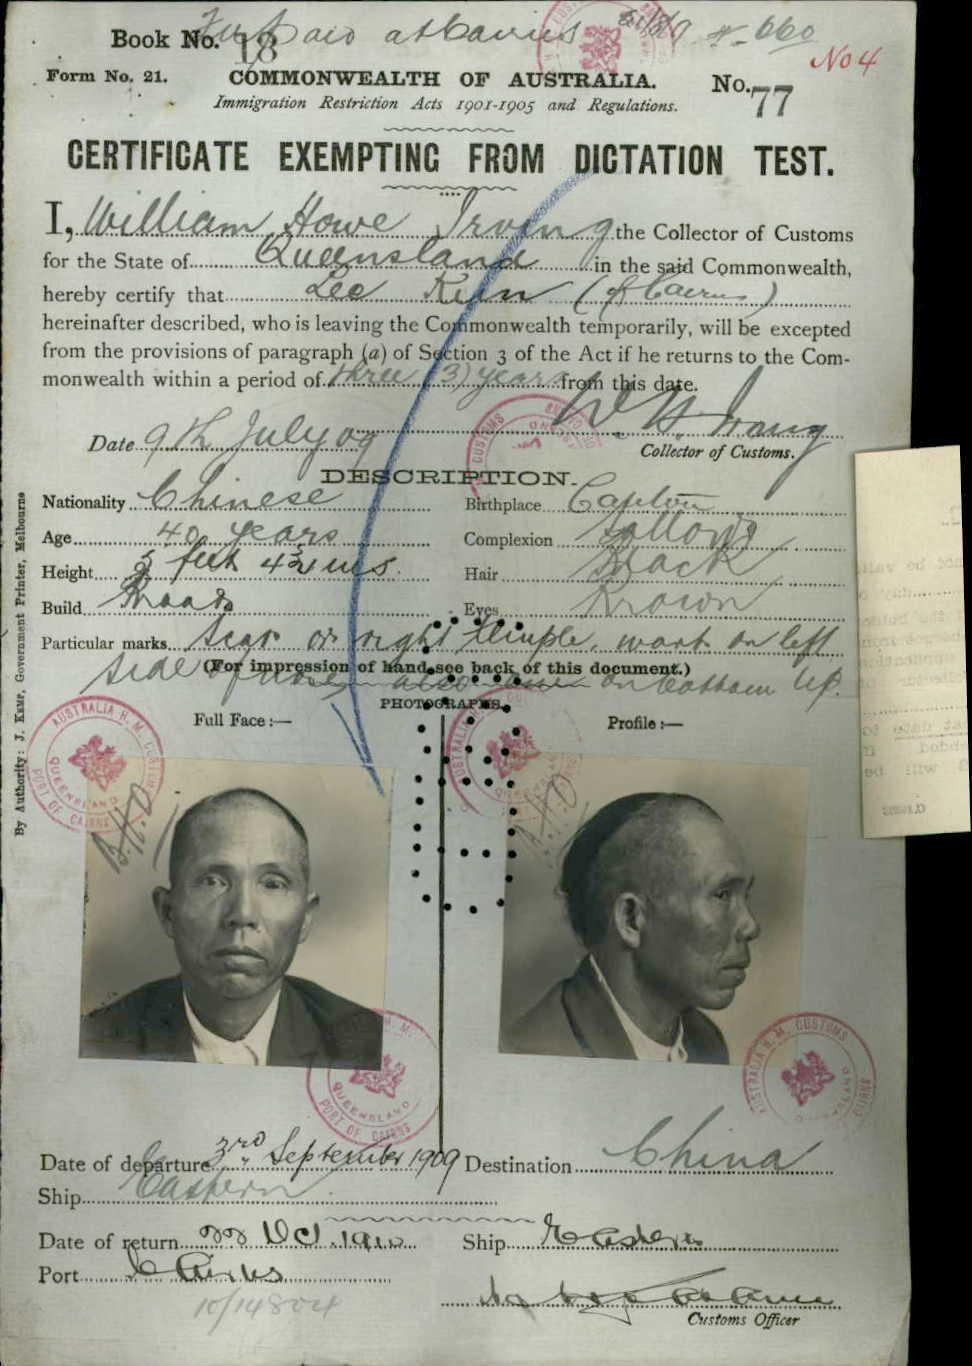 Fee paid at Cairns
Book No. 18
No 4
Form No. 21.
COMMONWEALTH OF AUSTRALIA.
No. 77
Immigration Restriction Acts 1901-1905 and Regulations.
CERTIFICATE EXEMPTING FROM DICTATION TEST.
I, William Howe Irving the Collector of Customs
for the State of Queensland in the said Commonwealth,
hereby certify that Lee Kin (of Cairns)
hereinafter described, who is leaving the Commonwealth temporarily, will be excepted
from the provisions of paragraph (a) of Section 3 of the Act if he returns to the Com-
monwealth within a period of three (3) years from this date.
W. H. Irving
Date 9th July 09
Collector of Customs.
DESCRIPTION.
Nationality Chinese
Birthplace Canton
Age 40 years
Complexion Sallow
Height 5 feet 4½ ins.
Hair Black
Build Broad
Eyes Brown
Particular marks Scar on right temple, mark on left
side of nose, also on bottom lip.
(For impression of hand see back of this document.)
PHOTOGRAPHS.
Full Face :—
Profile :—
By Authority: J. Kemp, Government Printer, Melbourne
AUSTRALIA H. M. CUSTOMS
QUEENSLAND
PORT OF CAIRNS
Date of departure 3rd September 1909
Destination China
Ship Eastern
Date of return 22 Oct 1910
Ship Eastern
Port Cairns
10/14804
Customs Officer